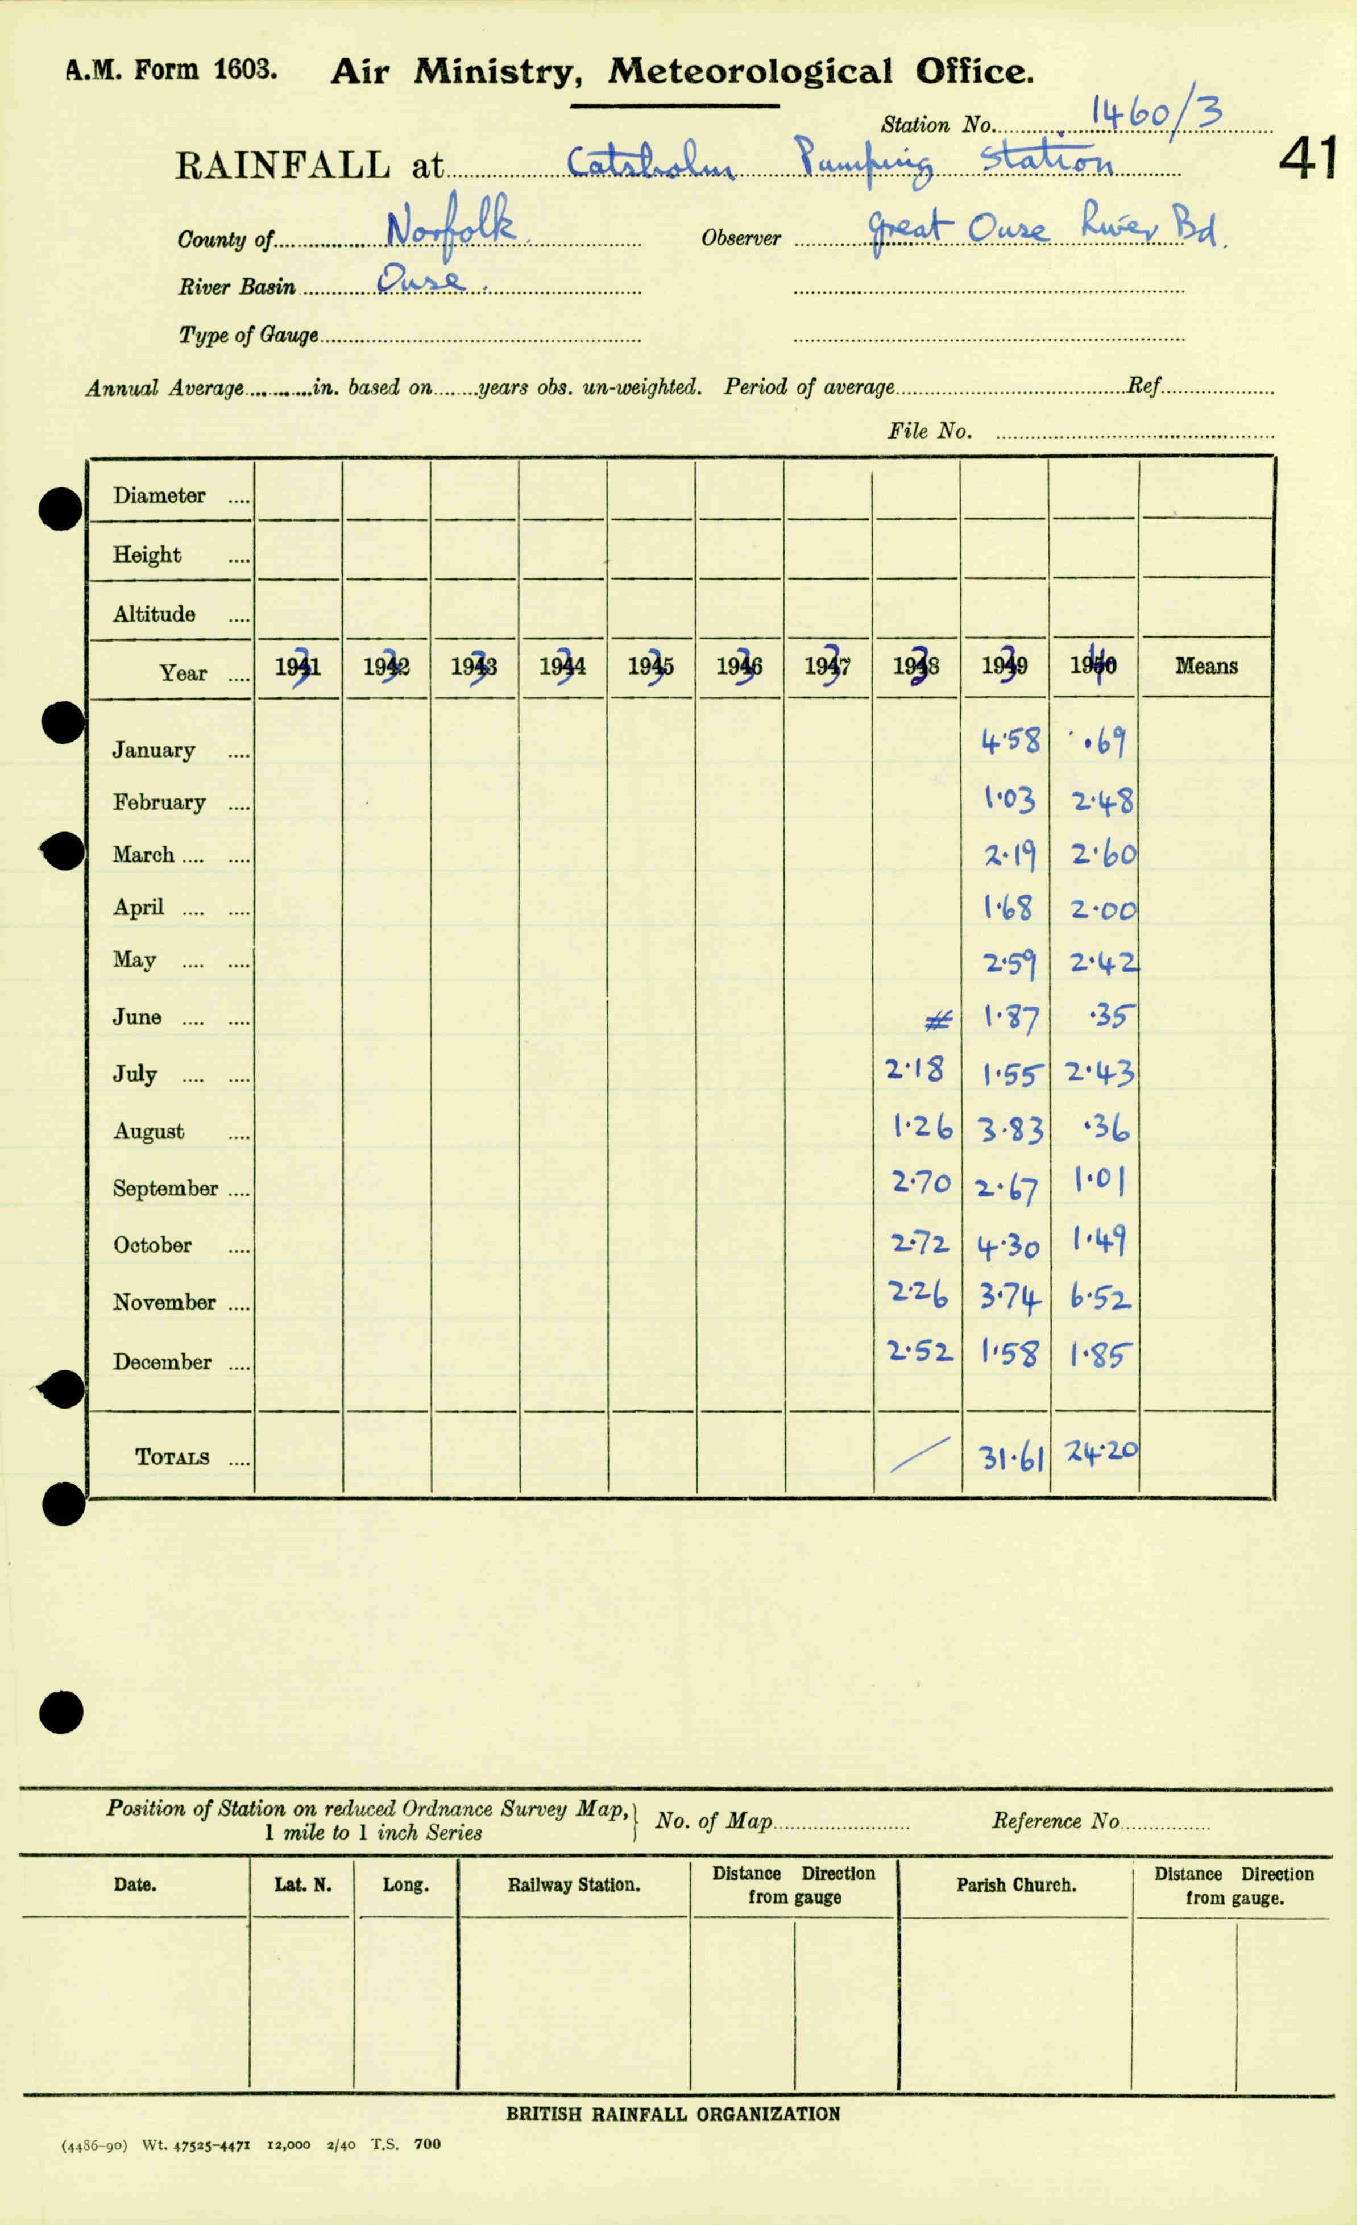 A.M. Form 1603. Air Ministry, Meteorological Office.
Station No. 1460/3
RAINFALL at Catsholm Pumping Station 41
County of Norfolk. Observer Great Ouse River Bd.
River Basin Ouse.
Type of Gauge
Annual Average in. based on years obs. un-weighted. Period of average Ref.
File No.
Diameter
Height
Altitude
Year 1931 1932 1933 1934 1935 1936 1937 1938 1939 1940 Means
January 4.58 .69
February 1.03 2.48
March 2.19 2.60
April 1.68 2.00
May 2.59 2.42
June # 1.87 .35
July 2.18 1.55 2.43
August 1.26 3.83 .36
September 2.70 2.67 1.01
October 2.72 4.30 1.49
November 2.26 3.74 6.52
December 2.52 1.58 1.85
TOTALS / 31.61 24.20
Position of Station on reduced Ordnance Survey Map, } No. of Map Reference No
1 mile to 1 inch Series
Date. Lat. N. Long. Railway Station. Distance Direction from gauge Parish Church. Distance Direction from gauge.
BRITISH RAINFALL ORGANIZATION
(4486-90) Wt. 47525-4471 12,000 2/40 T.S. 700